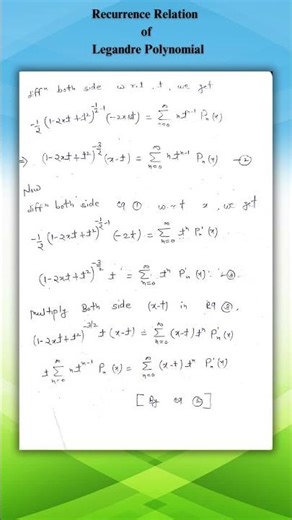 Recurrence Relation
of
Legandre Polynomial
diffn both side w.r.t. t, we get
-1/2 (1-2xt+t²)^(-1/2-1) (-2x+2t) = Σ_{n=0}^∞ n t^(n-1) P_n(x)
⇒ (1-2xt+t²)^(-3/2) (x-t) = Σ_{n=0}^∞ n t^(n-1) P_n(x) -②
Now
diffn both side eq ① w.r.t x, we get
-1/2 (1-2xt+t²)^(-1/2-1) (-2t) = Σ_{n=0}^∞ t^n P_n'(x)
(1-2xt+t²)^(-3/2) t = Σ_{n=0}^∞ t^n P_n'(x) -③
Multiply Both side (x-t) in eq ③,
(1-2xt+t²)^(-3/2) t (x-t) = Σ_{n=0}^∞ (x-t) t^n P_n'(x)
t Σ_{n=0}^∞ n t^(n-1) P_n(x) = Σ_{n=0}^∞ (x-t) t^n P_n'(x)
[By eq ②]